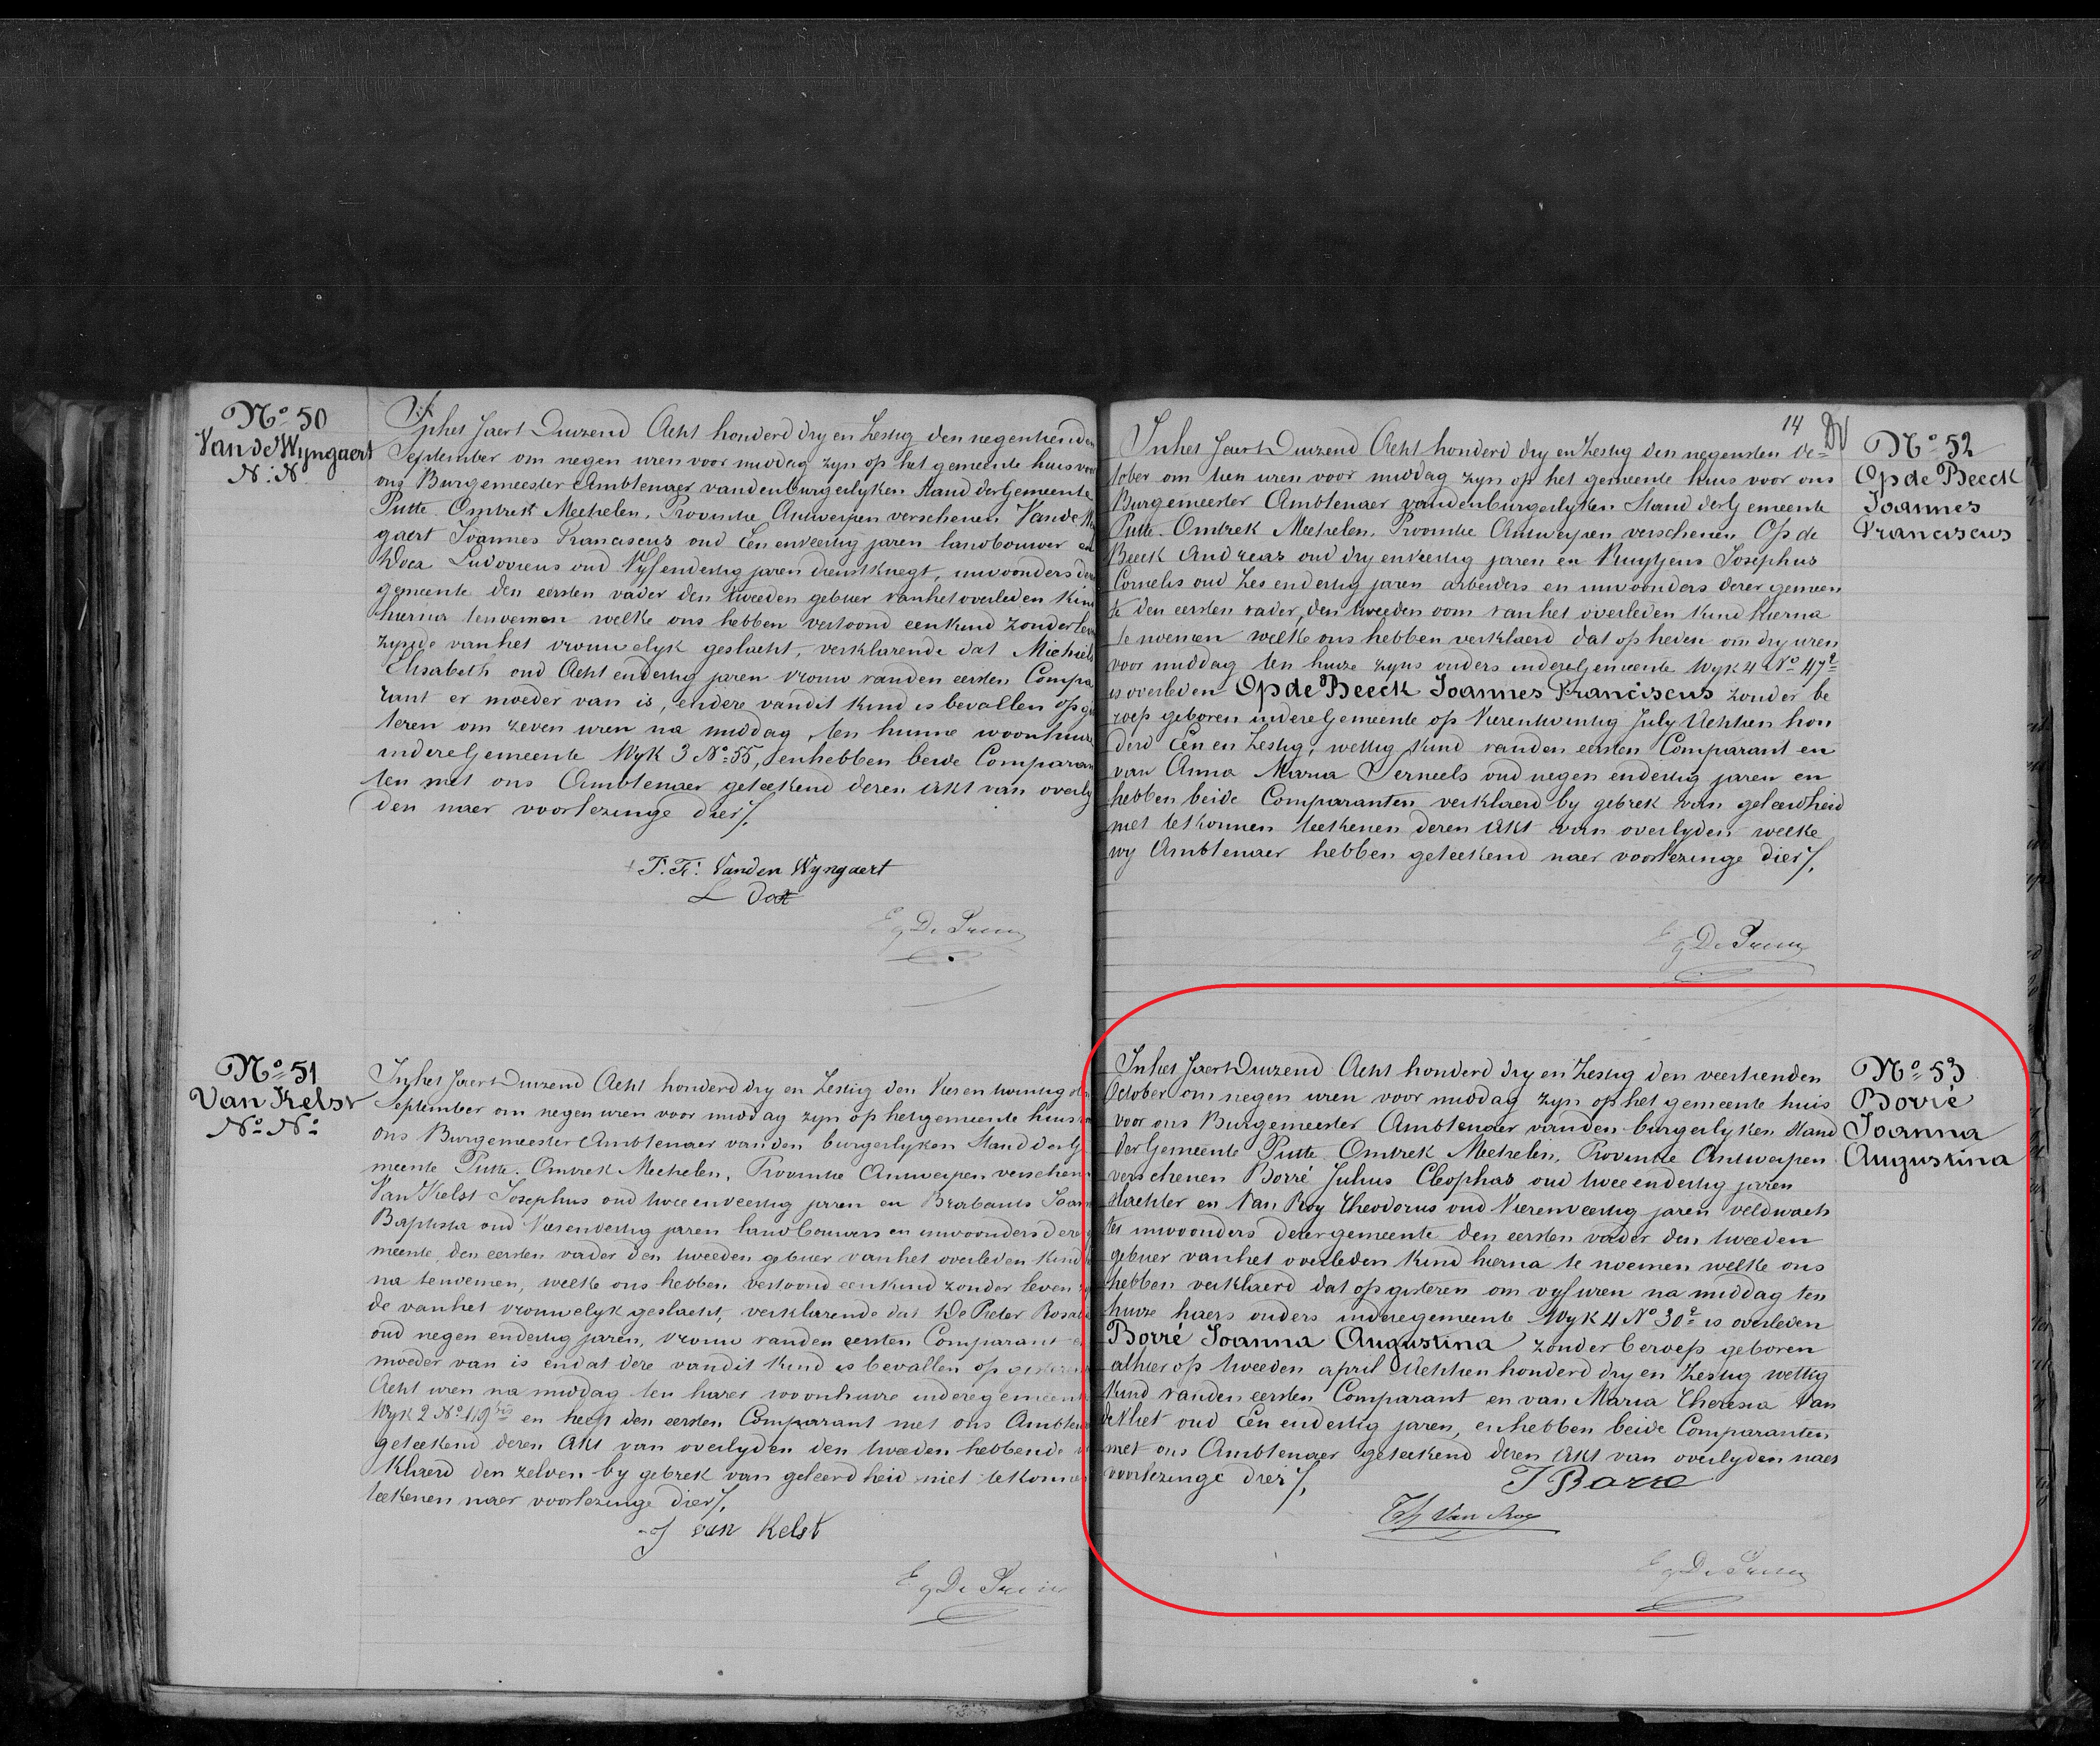 Nº 50
Van de Wyngaert
N: N
Inhet Jaert Duizend Acht honderd dry en Zestig den negentienden
September om negen uren voor middag zyn op het gemeente huis voor
ons Burgemeester Ambtenaer vanden burgerlyken Stand der Gemeente
Putte Omtrek Mechelen, Provintie Antwerpen verschenen Van de Wyn
gaert Joannes Franciscus oud Een enveertig jaren landbouwer en
Docx Ludovicus oud Vyf endertig jaren dienstknegt, inwoonders dezer
gemeente den eersten vader den tweeden gebuer vanhet overleden Kind
hierna tenoemen welke ons hebben vertoond een kind zonder leven
zynde vanhet vrouwelyk geslacht, verklarende dat Michiels
Elisabeth oud Acht endertig jaren vrouw vanden eersten Compa
rant er moeder van is, endere vandit kind is bevallen op gis
teren om zeven uren na middag ten hunne woonhuize
indeze Gemeente Wyk 3 Nº 55, enhebben beide Comparan
ten met ons Ambtenaer geteekend dezen akt van overly
den naer voorlezinge dier/.
J. Fr: Vanden Wyngaert
L Dox
Nº 51
Van Kelst
Nº Nº
Inhet Jaert Duizend Acht honderd dry en Zestig den Vier en twintigsten
September om negen uren voor middag zyn op het gemeente huis
ons Burgemeester Ambtenaer vanden burgerlyken Stand der Ge
meente Putte Omtrek Mechelen, Provintie Antwerpen verschenen
Van Kelst Josephus oud twee enveertig jaren en Brabants Joannes
Baptista oud Vier endertig jaren landbouwers en inwoonders dezer ge
meente, den eersten vader den tweeden gebuer vanhet overleden kind
na tenoemen, welke ons hebben vertoond een kind zonder leven zyn
de vanhet vrouwelyk geslacht, verklarende dat De Preter Rosalia
oud negen endertig jaren, vrouw vanden eersten Comparant er
moeder van is endat deze vandit kind is bevallen op gisteren
Acht uren na middag ten hares woonhuize indezegemeente
Wyk 2 Nº 119 bis en heeft den eersten Comparant met ons Ambtenaer
geteekend dezen Akt van overlyden den tweeden hebbende ver
klaerd den zelven by gebrek van geleerdheid niet tekonnen
teekenen naer voorlezinge dier/.
J van Kelst
14 DV
Inhet Jaert Duizend Acht honderd dry en Zestig den negensten Oc=
tober om tien uren voor middag zyn op het gemeente huis voor ons
Burgemeester Ambtenaer vandenburgerlyken Stand der Gemeente
Putte Omtrek Mechelen, Provintie Antwerpen verschenen Op de
Beeck Andreas oud dry enveertig jaren en Ruytjens Josephus
Cornelis oud Zes endertig jaren arbeiders en inwoonders dezer gemeen
te den eersten vader, den tweeden oom vanhet overleden kind hierna
te noemen welke ons hebben verklaerd dat op heden om dry uren
voor middag ten huize zyns ouders indezeGemeente Wyk 4 Nº 47 2
is overleden Op de Beeck Joannes Franciscus zonder be
roep geboren indeze Gemeente op Vierentwintig July Achtien hon
derd Een en Zestig, wettig kind vanden eersten Comparant en
van Anna Maria Serneels oud negen endertig jaren en
hebben beide Comparanten verklaerd by gebrek van geleerdheid
niet tekonnen teekenen dezen Akt van overlyden welke
wy Ambtenaer hebben geteekend naer voorlezinge dier/.
Nº 52
Op de Beeck
Joannes
Franciscus
Inhet Jaert Duizend Acht honderd dry en Zestig den veertienden
October om negen uren voor middag zyn op het gemeente huis
voor ons Burgemeester Ambtenaer vanden burgerlyken Stand
der Gemeente Putte Omtrek Mechelen, Provintie Antwerpen
verschenen Borré Julius Cleophas oud twee endertig jaren
slachter en Van Roy Theodorus oud Vierenveertig jaren veldwach
ter inwoonders dezer gemeente den eersten vader den tweeden
gebuer vanhet overleden kind hierna te noemen welke ons
hebben verklaerd dat op gisteren om vyf uren na middag ten
huize haers ouders indezegemeente Wyk 4 Nº 30 2 is overleden
Borré Joanna Augustina zonder beroep geboren
alhier op tweeden april Achtien honderd dry en Zestig wettig
kind vanden eersten Comparant en van Maria Theresia Van
oud Een endertig jaren, enhebben beide Comparanten
met ons Ambtenaer geteekend dezen Akt van overlyden naer
voorlezinge dier/.
J Borré
Th Van Roy
Nº 53
Borré
Joanna
Augustina